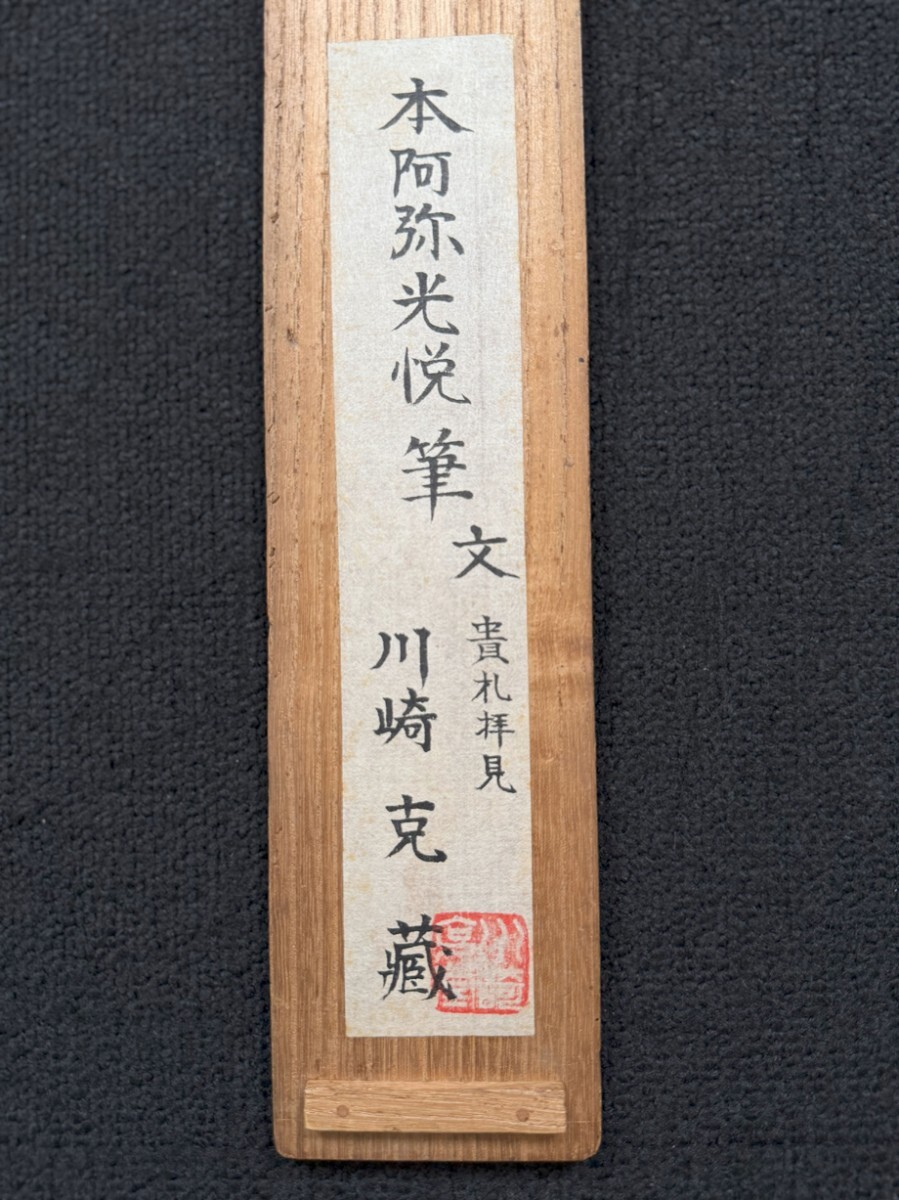 本阿弥光悦筆
文
貴札拝見
川崎克蔵